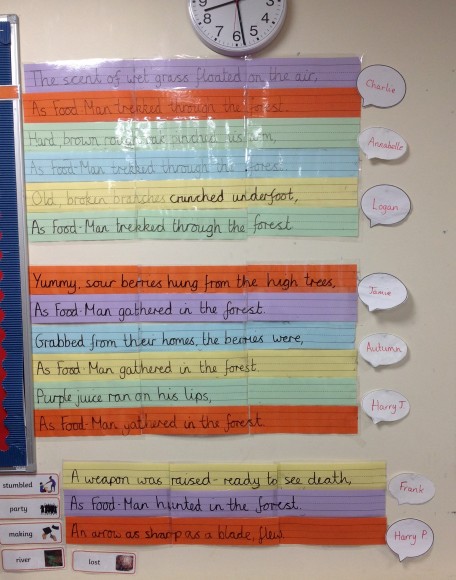 9 3
8 4
7 6 5
The scent of wet grass floated on the air,
Charlie
As Food-Man trekked through the forest.
Hard, brown
Annabelle
As Food-Man trekked through the forest.
Old, broken branches crunched underfoot,
Logan
As Food-Man trekked through the forest
Yummy, sour berries hung from the high trees,
Jamie
As Food-Man gathered in the forest.
Grabbed from their homes, the berries were,
Autumn
As Food-Man gathered in the forest
Purple juice ran on his lips,
Harry J
As Food-Man gathered in the forest.
A weapon was raised - ready to see death,
Frank
stumbled
As Food-Man hunted in the forest.
party
An arrow as sharp as a blade, flew
Harry P
making
river
lost